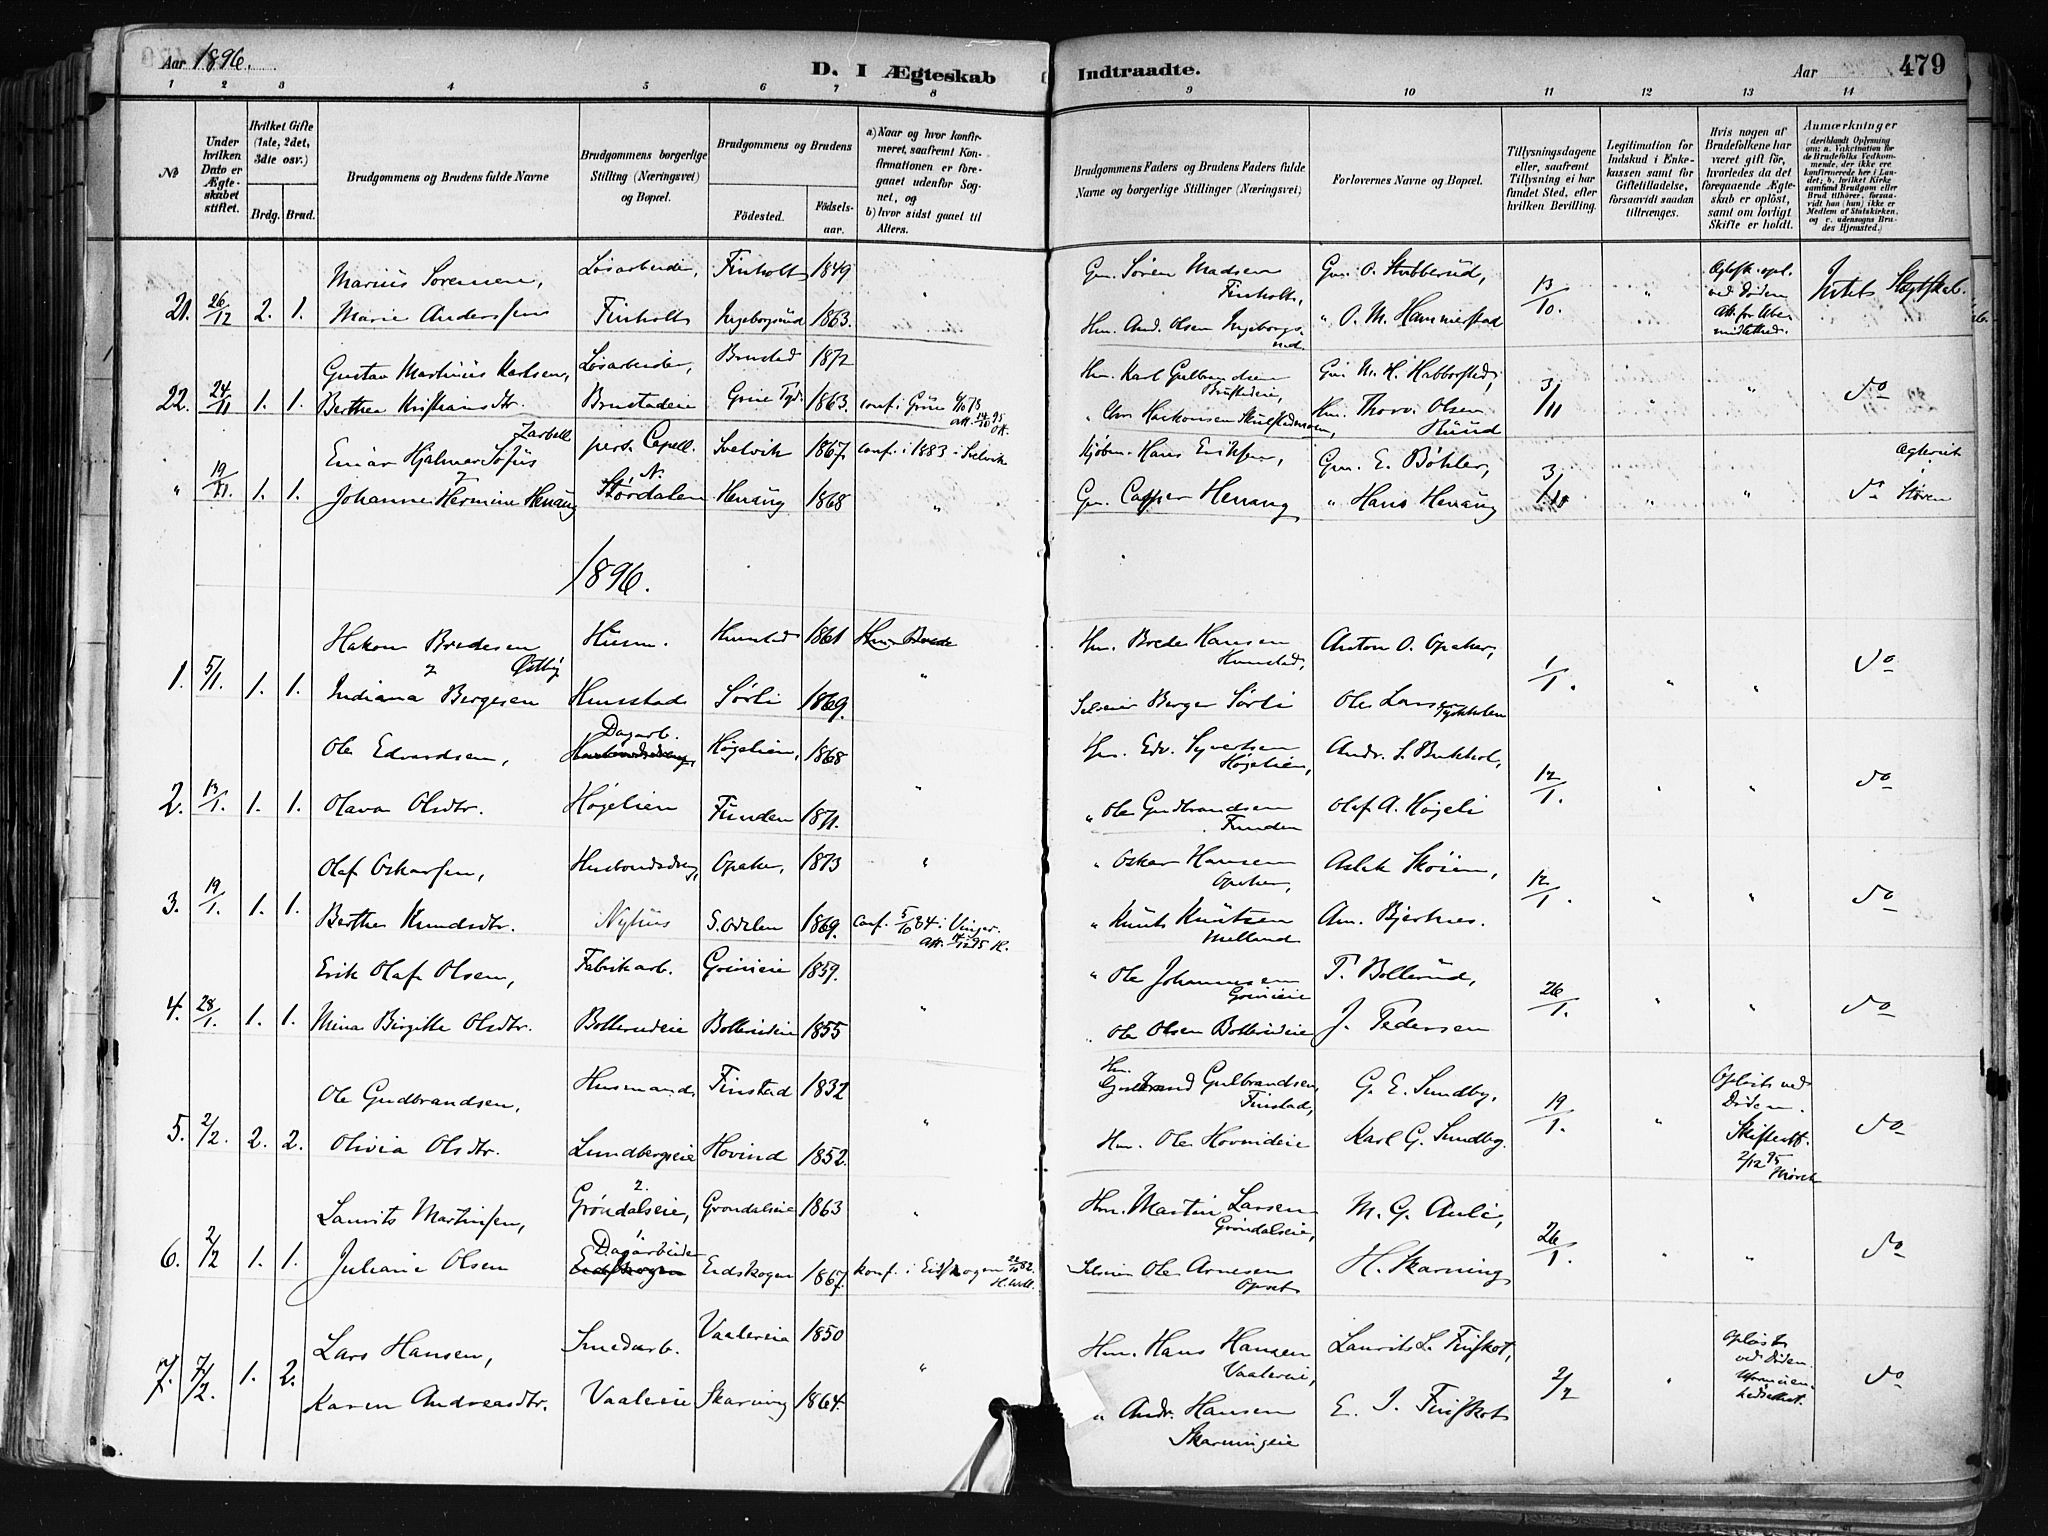 Aar 1896.
D. I Ægteskab Indtraadte.
Aar 479
1 2 3 4 5 6 7 8 9 10 11 12 13 14
No
Under hvilken Dato er Ægteskabet stiftet.
Hvilket Gifte (1ste, 2det, 3die osv.)
Brdg. Brud.
Brudgommens og Brudens fulde Navne
Brudgommens borgerlige Stilling (Næringsvei) og Bopæl.
Brudgommens og Brudens
Fødested. Fødselsaar.
a) Naar og hvor konfirmeret, saafremt Konfirmationen er foregaaet udenfor Sognet, og
b) hvor sidst gaaet til Alters.
Brudgommens Faders og Brudens Faders fulde Navne og borgerlige Stillinger (Næringsvei)
Forlovernes Navne og Bopæl.
Tillysningsdagene eller, saafremt Tillysning ei har fundet Sted, efter hvilken Bevilling.
Legitimation for Indskud i Enkekassen samt for Giftetilladelse, forsaavidt saadan tiltrænges.
Hvis nogen af Brudefolkene har været gift før, hvorledes da det foregaaende Ægteskab er opløst, samt om lovligt Skifte er holdt.
Anmærkninger (deriblandt Oplysning om: a. Vakcination for de Brudefolks Vedkommende, der ikke ere konfirmerede her i Landet; b. hvilket Kirkesamfund Brudgom eller Brud tilhører, forsaavidt han (hun) ikke er Medlem af Statskirken, og c. udensogns Brudes Hjemsted.)
Marius Sorensen, Løsarbeider, Finholt 1849 " Gm. Søren Madsen Finholt, Gm. O. Stubberud,
21. 26/12 2. 1. Marie Anderssen Finholt Ingeborgsrud 1863. Hm. And. Olsen Ingeborgsrud. " O. M. Hammerstad 13/10. " ved Døden Intet Slægtskab.
Gustav Martinius Karlsen, Løsarbeider, Brustad 1872 Hm. Karl Gulbrandsen Brustadeie, Gm M. H. Habborstad,
22. 24/11 1. 1. Berthea Kristiansdtr. Brustadeie Grue 1863. conf. i Grue Hm. Thorv. Olsen 3/11 " " do
Einar Hjalmar Sofus Zarbell pers. Capell. Svelvik 1867. conf. i 1883 i Svelvik Kjøbm. Hans Eriksen, Gm. E. Bøhler,
" 19/11. 1. 1. Johanne Hermine Heraug N. Størdalen Heraug 1868 " Gm. Casper Heraug " Hans Heraug 3/10 " " do Støren
1896.
Hakon Bredesen Østby Husm. Hunstad 1861 Hm. Brede Hansen Hunstad, Anton O. Opaker,
1. 5/1. 1. 1. Indiana Bergesen Hunstad Sørli 1869. " Selveier Berger Sørli Ole Larsen 1/1. " " do
Ole Edvardsen, Dagarb. Høgelien, 1868 Hm. Edv. Syvertsen Høgelien, Andr. S. Bukhol,
2. 13/1. 1. 1. Olava Olsdtr. Høgelien Funden 1871. " " Ole Gudbrandsen Funden Olaf A. Høgeli 12/1. " " do
Olaf Oskarsen, Husbondsdreng, Opaker, 1873 " " Oskar Hansen Opaker, Aslak Skøien,
3. 19/1. 1. 1. Berthe Knudsdtr. Nyhus S. Odalen 1869. conf. 5/10 84 i Vinger. " Knut Knutsen Melland Am. Bjertnes. 12/1. " " do
Erik Olaf Olsen, Fabrikarb. Greinieie 1859. " Ole Johannesen Greinieie T. Bollerud,
4. 28/1. 1. 1. Mina Birgitte Olsdtr. Bollerudeie Bollerudeie 1855 " " Ole Olsen Bollerudeie J. Pedersen 26/1. " " do
Ole Gudbrandsen, Husmand Finstad 1832 Hm. Gulbrand Gulbrandsen Finstad, G. E. Sundby, Opløst ved Døden.
5. 2/2. 2. 2. Olivia Olsdtr. Lundbergseie Hovind 1852. " Hm. Ole Hovindeie Karl G. Sundby. 19/1. " Skifteatt. 2/12 95 Mørch do
Laurits Martinsen, Grøndalseie, Grøndalseie 1863 " Hm. Martin Larsen Grøndalseie, M. G. Auli,
6. 2/2 1. 1. Juliane Olsen Dagarbeider Eidskogen Eidskogen 1867. konf. i Eidskogen 22/10 82. Selveier Ole Arnesen Opset H. Skarning 26/1. " " do
Lars Hansen, Smedarb. Vaalereie 1850 Hm. Hans Hansen Vaalereie, Laurits L. Fuskot, Opløst ved Døden.
7. 7/2. 1. 2. Karen Andreasdtr. Vaalereie Skarning 1864. " " Andr. Hansen Skarningeie E. J. Fuskot 2/2 " do